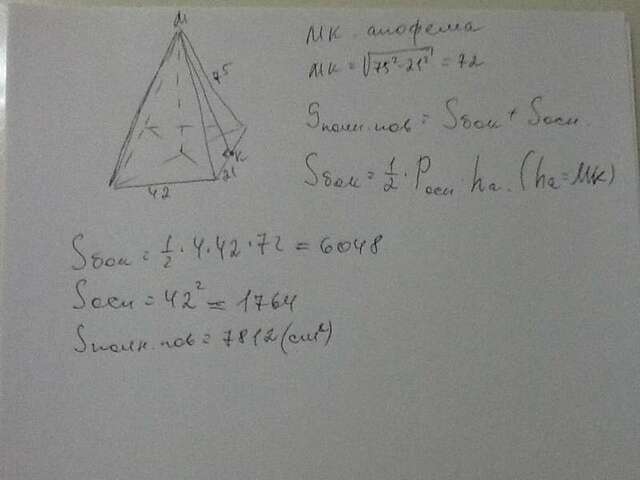 M
75
K
21
42
MK - апофема
MK = √75²-21² = 72
Sполн.пов = Sбок + Sосн.
Sбок = 1/2 · Pосн · ha. (ha = MK)
Sбок = 1/2 · 4 · 42 · 72 = 6048
Sосн = 42² = 1764
Sполн.пов = 7812 (см²)